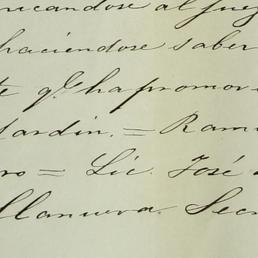 icandose al juz
haciendose saber
te q.e ha promov
Jardin. = Rami
ro = Lic. José
llanueva. Secr